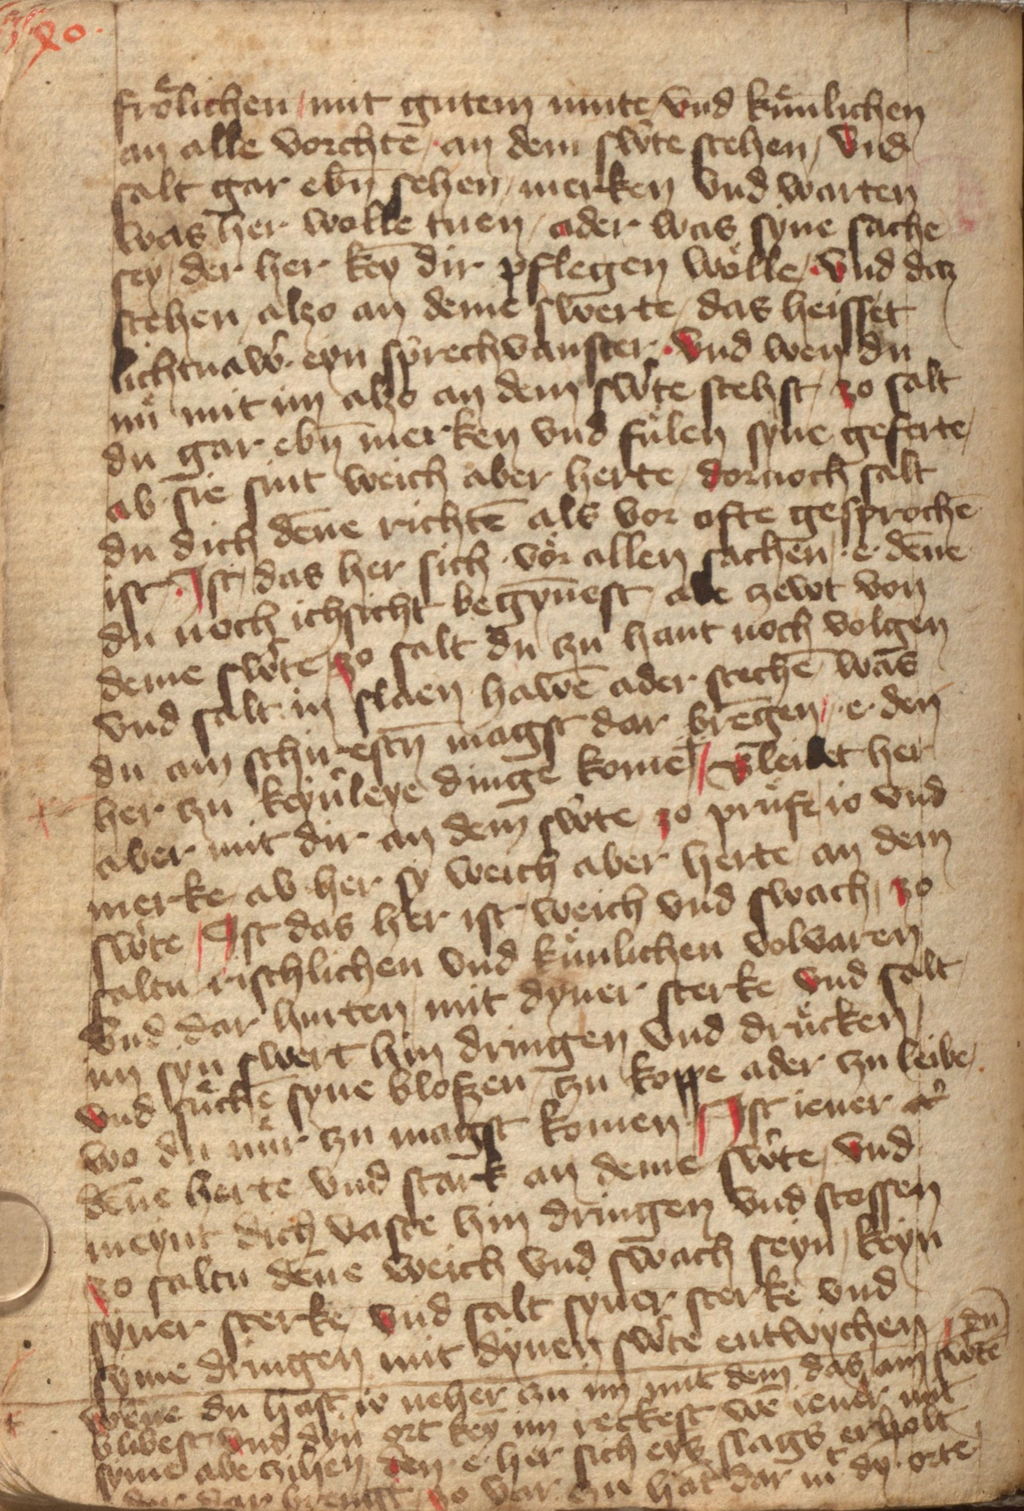 frölichen / mit gutem mute / vnd künlichen
an alle vorchtē / an dem sw̉te stehen / vnd
salt gar ebn̄ sehen / merken vnd warten
was her wolle tuen / ader was syne sache
sey / der her key dir pflegen wölle / vnd daz
stehen / alzo an deme swerte / das heisset
lichtnaw̉ · eyn sprechvanster · vnd wen du
nü mit im alzo an dem sw̉te stehst / zo salt
du gar ebn̄ merken vnd fülen syne geferte /
ab sie sint weich aber herte / dornoch salt
du dich dēne richtē als vor ofte gesprochē
ist · Ist / das her sich · vör allen sachen / e dēne
du noch ichsicht begȳnest / abe zewt von
deme sw̉te / zo salt du zu hant noch volgen
vnd salt in slaen hawē ader stechē was
du am schirestn̄ magst dar brēgen / e den
her zu keyn̉leye dinge kome / Bleibet her
aber mit dir an dem sw̉te / zo prüfe io vnd
merke ab her sy weich aber herte an dem
sw̉te / Ist das her ist weich vnd swach / zo
saltu rischlichen vnd künlichen volvaren
vnd dar hurten / mit dyner sterke vnd salt
im syn swert hin dringen vnd drücken
vnd suchē syne blossen / zu koppe ader zu leibe /
wo du nür zu magst komen / Ist iener
dēne herte vnd stark an deme sw̉te / vnd
meynt dich vaste hin dringen vnd stossen
zo saltu dēne weich vnd swach seyn / keyn
syner sterke / vnd salt syner sterke vnd
syme dringen mit dynen sw̉te entwychen /
wēne du hast io neher zu im mit dem das du am sw̉te
blibest vnd dyn ort key im reckest wē iener mit
syme abe zihen / den · e · her sich eyns slags erholt
dar brengt / zo var zu hāt dar in mit dȳ orte